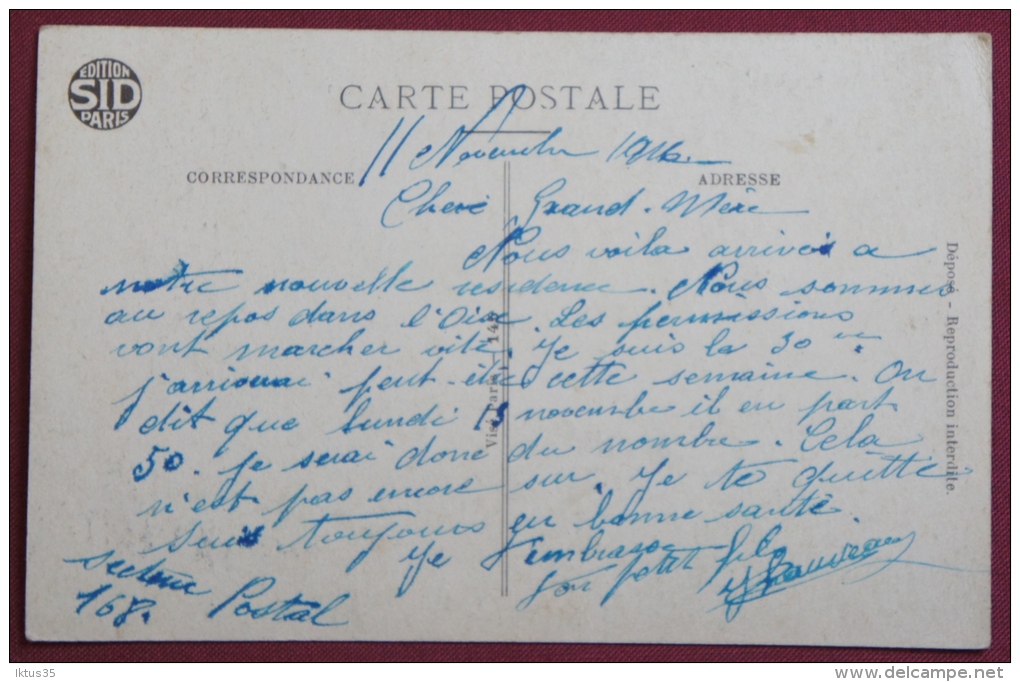 EDITION
SID
PARIS
CARTE POSTALE
CORRESPONDANCE
ADRESSE
11 Novembre 1916
Chere Grand-Mère
Nous voila arrivés a
notre nouvelle residence. Nous sommes
au repos dans l'Oise. Les permissions
vont marcher vite. Je suis le 30 me
j'arriverai peut-être cette semaine. On
dit que lundi 13 novembre il en part
50. Je serai donc du nombre. Cela
n'est pas encore sur. Je te quitte
suis toujours en bonne santé.
Je t'embrasse
ton petit fils
secteur Postal
168.
Visé Paris
Déposé - Reproduction interdite.
lktus35
www.delcampe.net